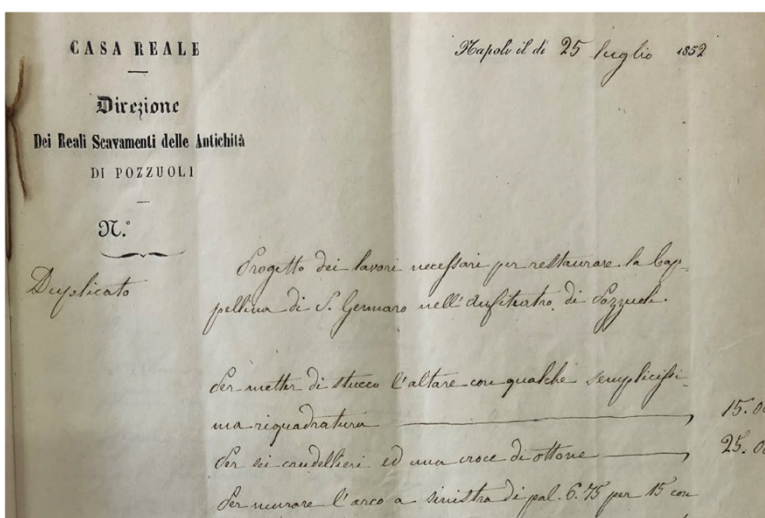 CASA REALE
Napoli il dì 25 luglio 1852
Direzione
Dei Reali Scavamenti delle Antichità
DI POZZUOLI
N.°
Duplicato
Progetto dei lavori necessari per restaurare la Cap-
pellina di S. Gennaro nell'Anfiteatro di Pozzuoli.
Per metter di stucco l'altare con qualche semplicissi-
ma riquadratura 15.00
Per sei candellieri ed una croce di ottone 25.00
Per murare l'arco a sinistra di pal. 6.75 per 15 con